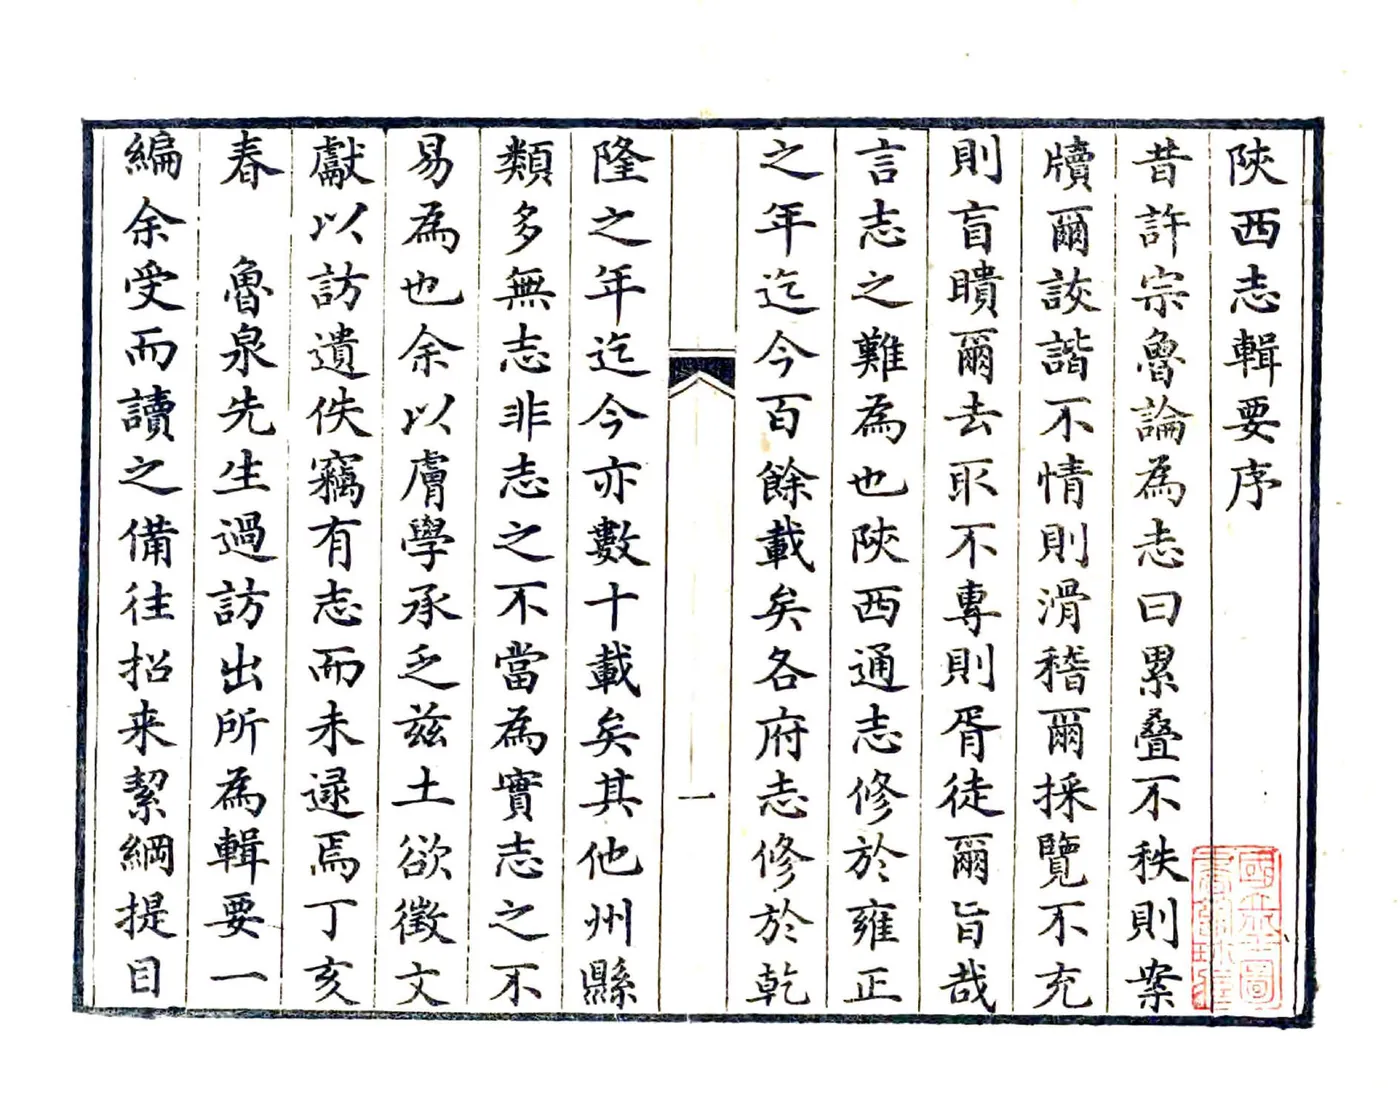 陜西志輯要序
昔許宗魯論為志曰累疊不秩則案
牘爾詼諧不情則滑稽爾採覽不充
則盲瞶爾去取不專則胥徒爾旨哉
言志之難為也陜西通志修於雍正
之年迄今百餘載矣各府志修於乾
一
隆之年迄今亦數十載矣其他州縣
類多無志非志之不當為實志之不
易為也余以膚學承乏兹土欲徵文
獻以訪遺佚竊有志而未逮焉丁亥
春 魯泉先生過訪出所為輯要一
編余受而讀之備往招来絜綱提目